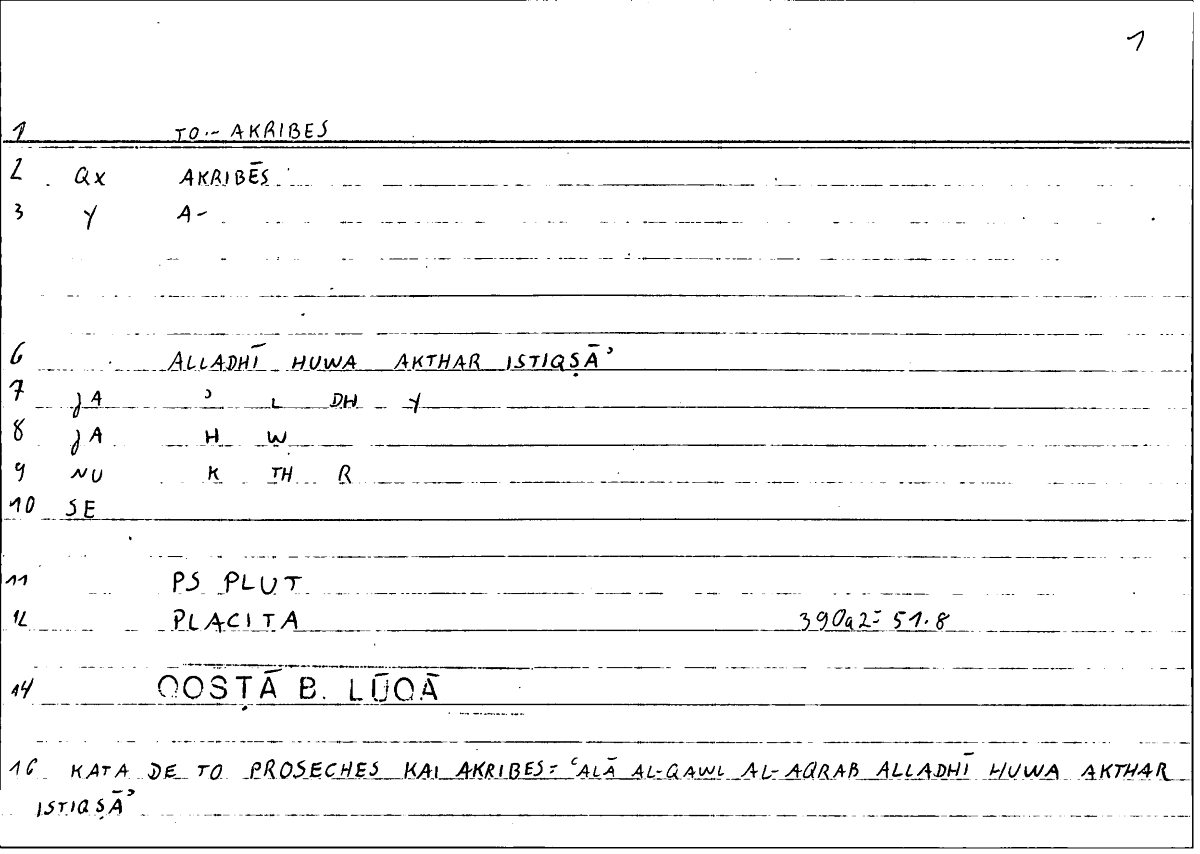 1
1 TO -- AKRIBES
2 Qx AKRIBĒS
3 Y A-
6 ALLADHĪ HUWA AKTHAR ISTIQṢĀʾ
7 JA ʾ L DH Y
8 JA H W
9 NU K TH R
10 SE
11 PS PLUT
12 PLACITA 390a2= 51.8
14 QOSṬĀ B. LŪQĀ
16 KATA DE TO PROSECHES KAI AKRIBES= ʿALĀ AL-QAWL AL-AQRAB ALLADHĪ HUWA AKTHAR
ISTIQṢĀʾ